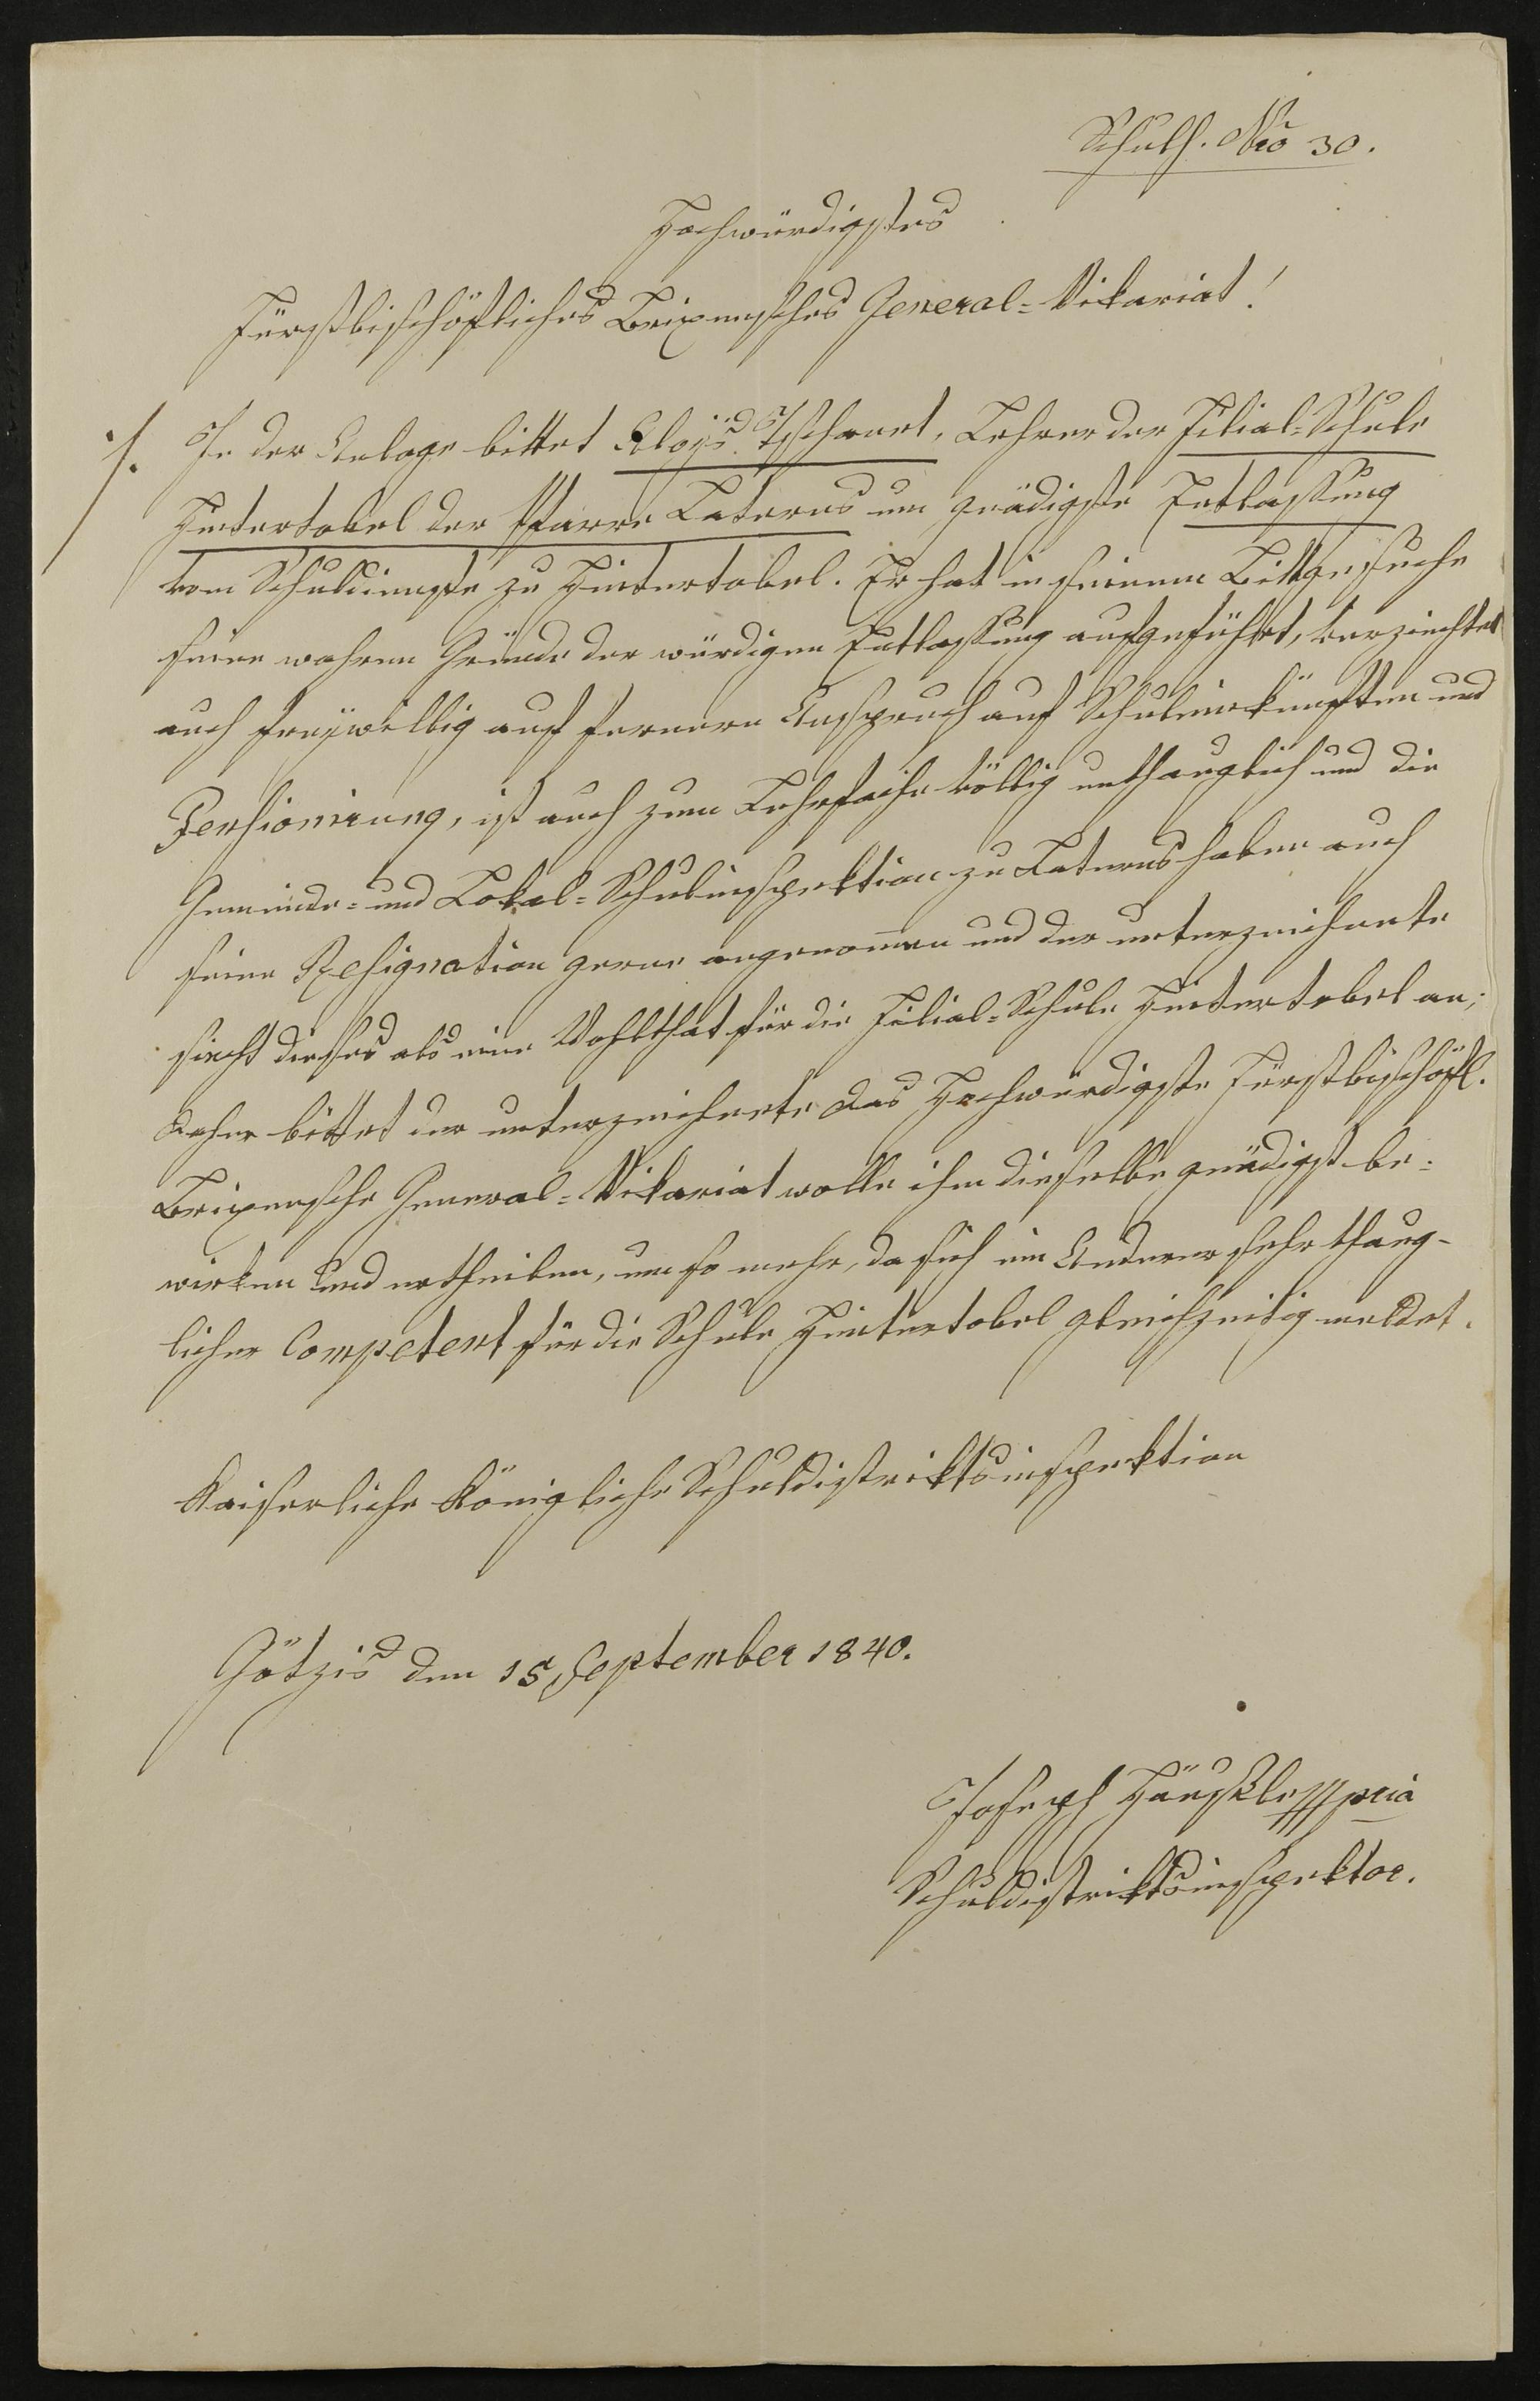 Schuls. Nro 30.
Hochwürdigstes
Fürstbischöfliches Brixnensches General=Vikariat!
./. In der Anlage bittet Aloys Tschanet, Lehrer der Filial=Schule
Hintertobel der Pfarre Laterns um gnädigste Entlassung
vom Schuldienste zu Hintertobel. Er hat in seinem Bittgesuche
seine wahren Gründe der würdigen Entlassung aufgeführt, verziechtet
auch freÿwillig auf fernern Anspruch auf Schuleinkünften und
Pensionirung, ist auch zum Lehrfache völlig unthauglich und die
Gemeinde= und Lokal=Schulinspektion zu Laterns haben auch
seine Resignation gerne angenom̅en und der unterzeichnete
sieht dieses als eine Wohlthat für die Filial=Schule Hintertobel an;
daher bittet der unterzeichnete das Hochwürdigste Fürstbischöfl.
Brixnensche General=Vikariat wolle ihm dieselbe gnädigst be=
wirken und ertheilen, um so mehr, da sich ein Anderer sehr thaug-
licher Competent für die Schule Hintertobel gleichzeitig meldet.
Kaiserliche Königliche Schuldistriktsinspektion
Götzis den 15 September 1840.
Joseph Häusle mpria
Schuldistriktsinspektor.